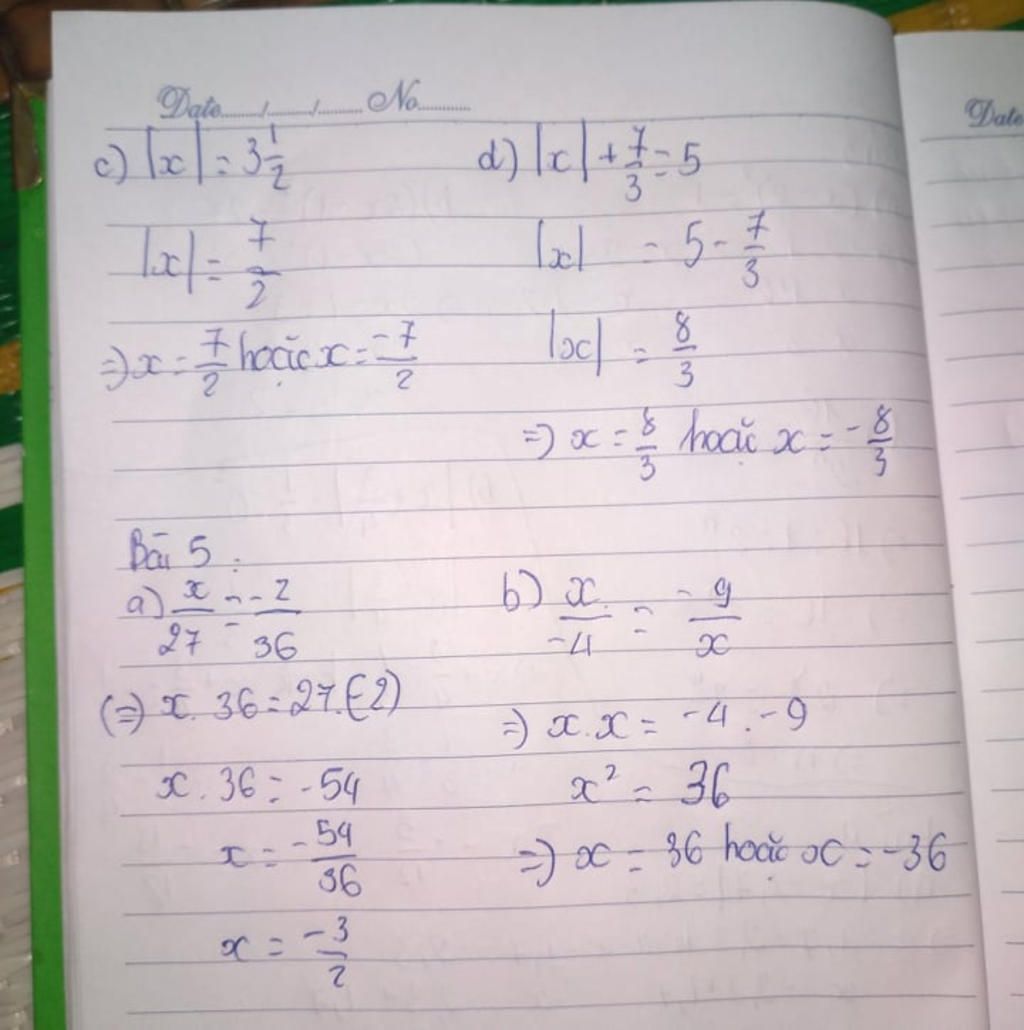 Date....../....../...... No.........
Date
c) |x| = 3 1/2
|x| = 7/2
=) x = 7/2 hoặc x = -7/2
d) |x| + 7/3 = 5
|x| = 5 - 7/3
|x| = 8/3
=) x = 8/3 hoặc x = -8/3
Bài 5 :
a) x/27 = -2/36
(=) x. 36 = 27.(-2)
x. 36 = -54
x = -54/36
x = -3/2
b) x/-4 = -9/x
=) x.x = -4 . -9
x² = 36
=) x = 36 hoặc x = -36